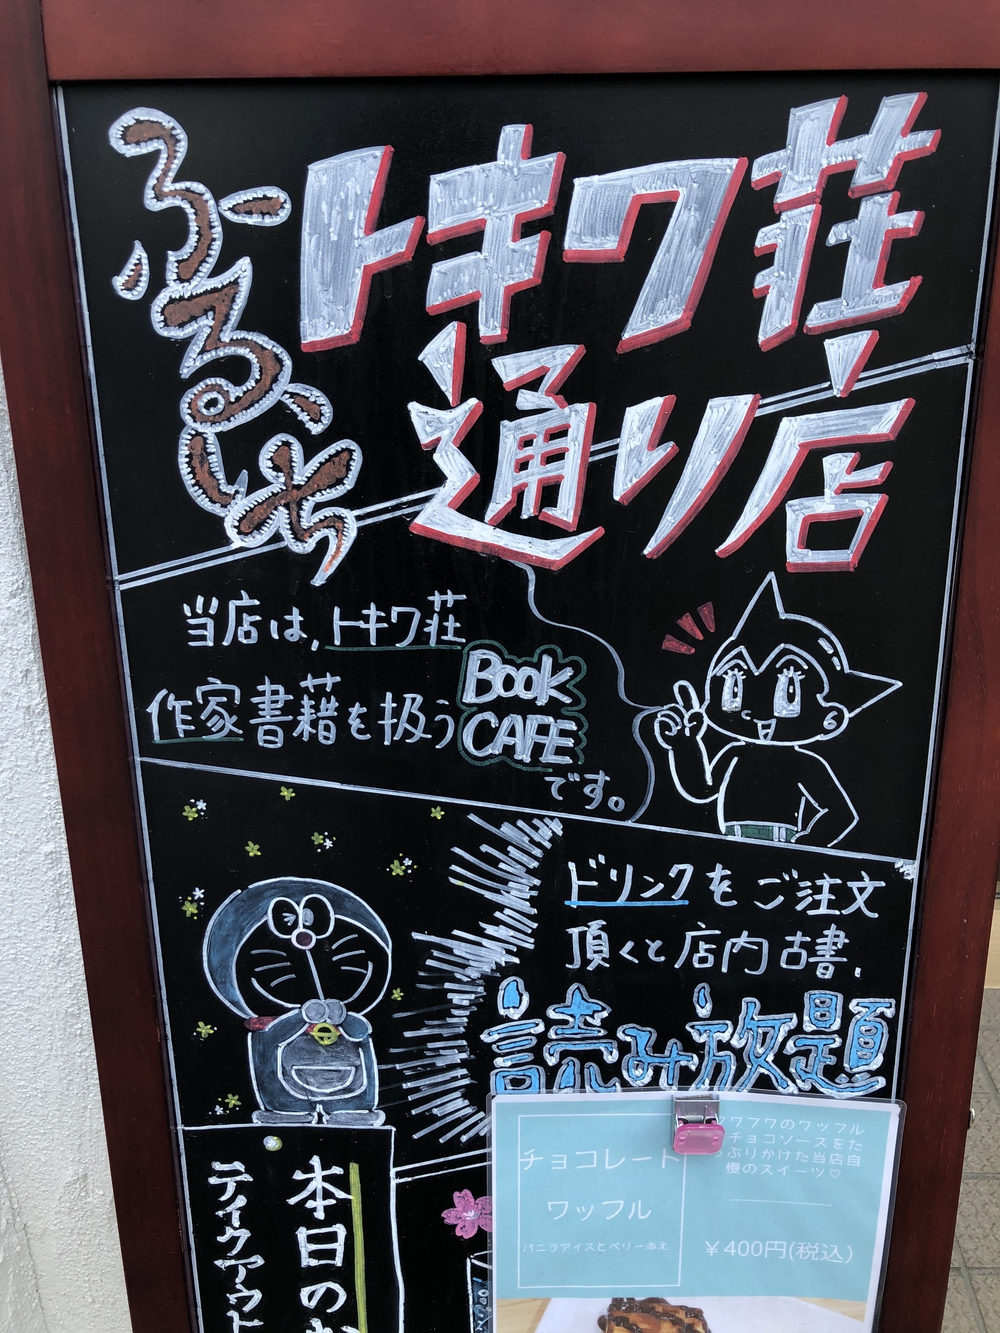 ふるいち
トキワ荘
通り店
当店は、トキワ荘
作家書籍を扱う
BOOK
CAFE
です。
ドリンクをご注文
頂くと店内古書、
読み放題
本日の
テイクアウト
チョコレート
ワッフル
バニラアイスとベリー添え
フワフワのワッフル
チョコソースをた
っぷりかけた当店自
慢のスイーツ♡
￥400円(税込)